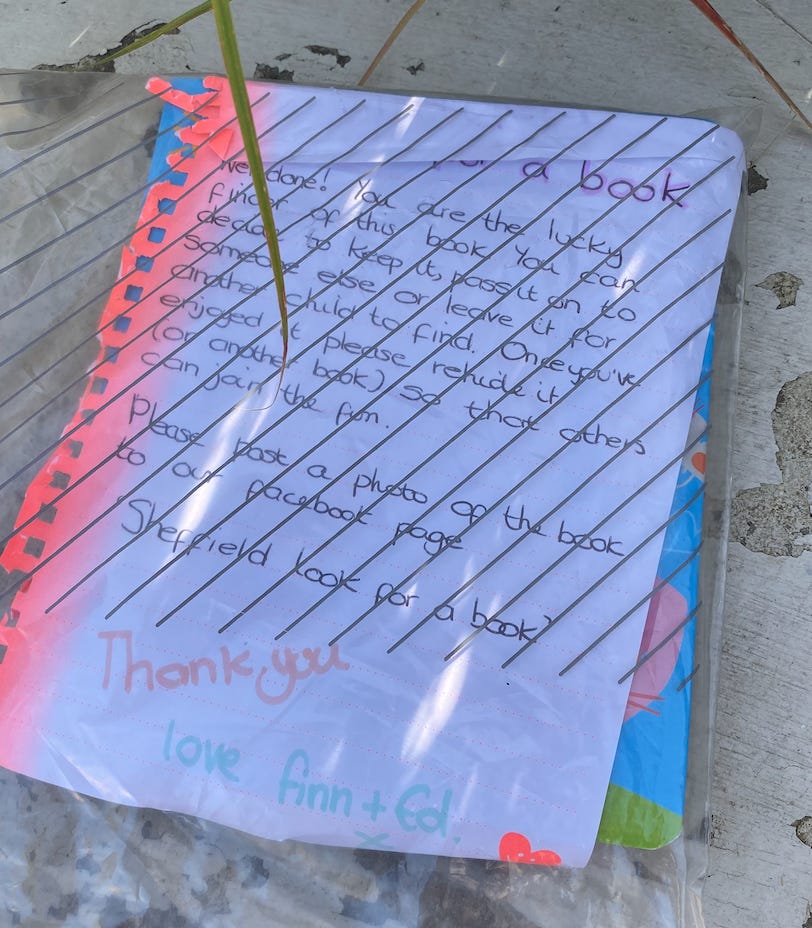 for a book
Well done! You are the lucky
finder of this book. You can
decide to keep it, pass it on to
someone else or leave it for
another child to find. Once you've
enjoyed it please rehide it
(or another book) so that others
can join the fun.
Please post a photo of the book
to our facebook page
'Sheffield look for a book'
Thank you
love finn + Ed.
x